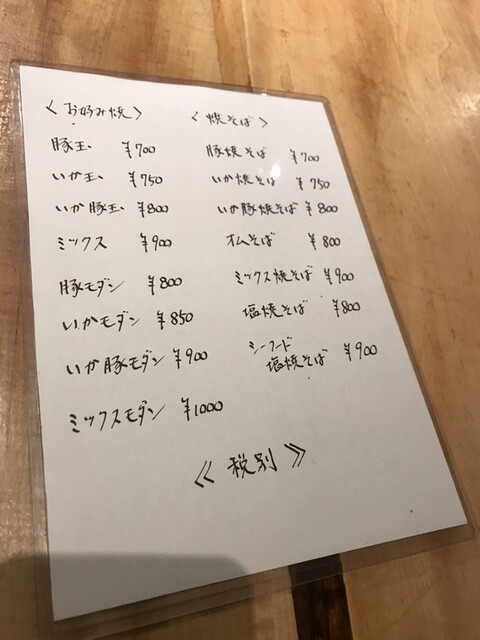 〈お好み焼〉
豚玉 ¥700
いか玉 ¥750
いか豚玉 ¥800
ミックス ¥900
豚モダン ¥800
いかモダン ¥850
いか豚モダン ¥900
ミックスモダン ¥1000
〈焼そば〉
豚焼そば ¥700
いか焼そば ¥750
いか豚焼そば ¥800
オムそば ¥800
ミックス焼そば ¥900
塩焼そば ¥800
シーフード
塩焼そば ¥900
《税別》